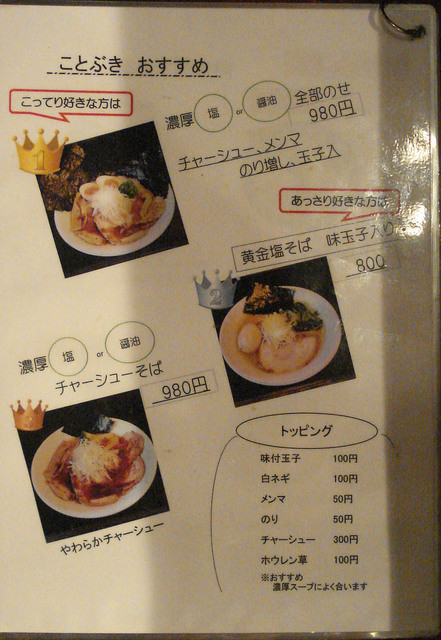 ことぶき おすすめ
こってり好きな方は
濃厚 塩 or 醤油 全部のせ
980円
チャーシュー、メンマ
のり増し、玉子入
1
あっさり好きな方は
黄金塩そば 味玉子入り
800
2
濃厚 塩 or 醤油
チャーシューそば
980円
やわらかチャーシュー
トッピング
味付玉子 100円
白ネギ 100円
メンマ 50円
のり 50円
チャーシュー 300円
ホウレン草 100円
※おすすめ
濃厚スープによく合います